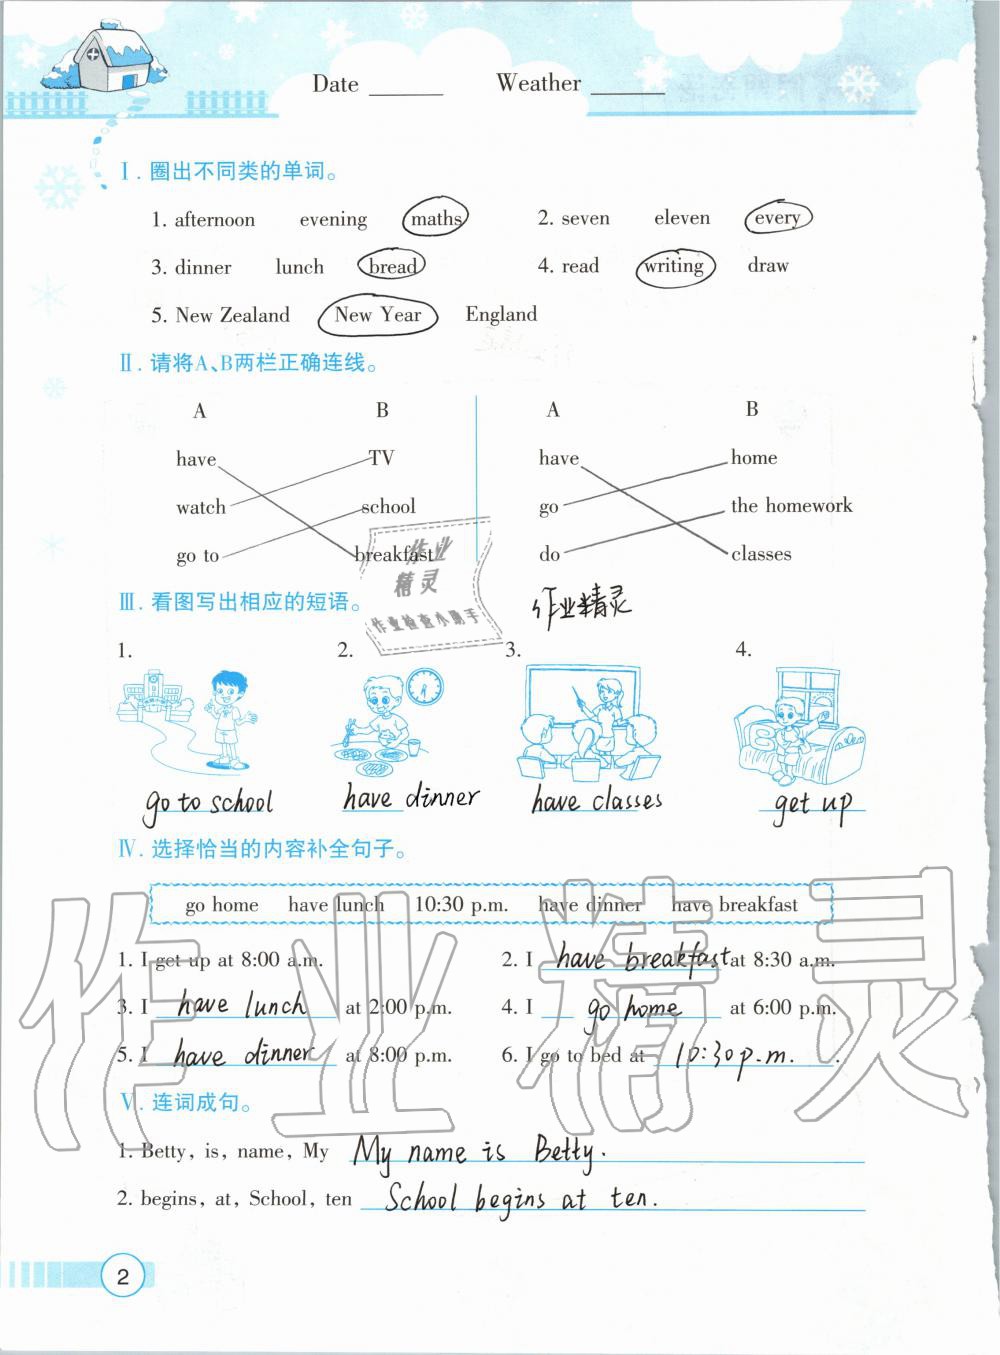 Date ______ Weather ______
Ⅰ. 圈出不同类的单词。
1. afternoon evening maths 2. seven eleven every
3. dinner lunch bread 4. read writing draw
5. New Zealand New Year England
Ⅱ. 请将A、B两栏正确连线。
A B A B
have TV have home
watch school go the homework
go to breakfast do classes
作业
精灵
作业检查小助手
Ⅲ. 看图写出相应的短语。
作业精灵
1. 2. 3. 4.
go to school have dinner have classes get up
Ⅳ. 选择恰当的内容补全句子。
go home have lunch 10:30 p.m. have dinner have breakfast
1. I get up at 8:00 a.m. 2. I have breakfast at 8:30 a.m.
3. I have lunch at 2:00 p.m. 4. I go home at 6:00 p.m.
5. I have dinner at 8:00 p.m. 6. I go to bed at 10:30 p.m. .
作业精灵
Ⅴ. 连词成句。
1. Betty, is, name, My My name is Betty.
2. begins, at, School, ten School begins at ten.
2